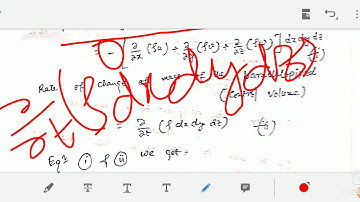 = - [ ∂/∂x (ρu) + ∂/∂y (ρv) + ∂/∂z (ρw) ] dx dy dz (i)
∂/∂t (ρ dx dy dz)
Rate of Change of mass of the parallelopiped
(Control Volume)
= ∂/∂t (ρ dx dy dz) (ii)
Eqⁿ (i) & (ii) we get -